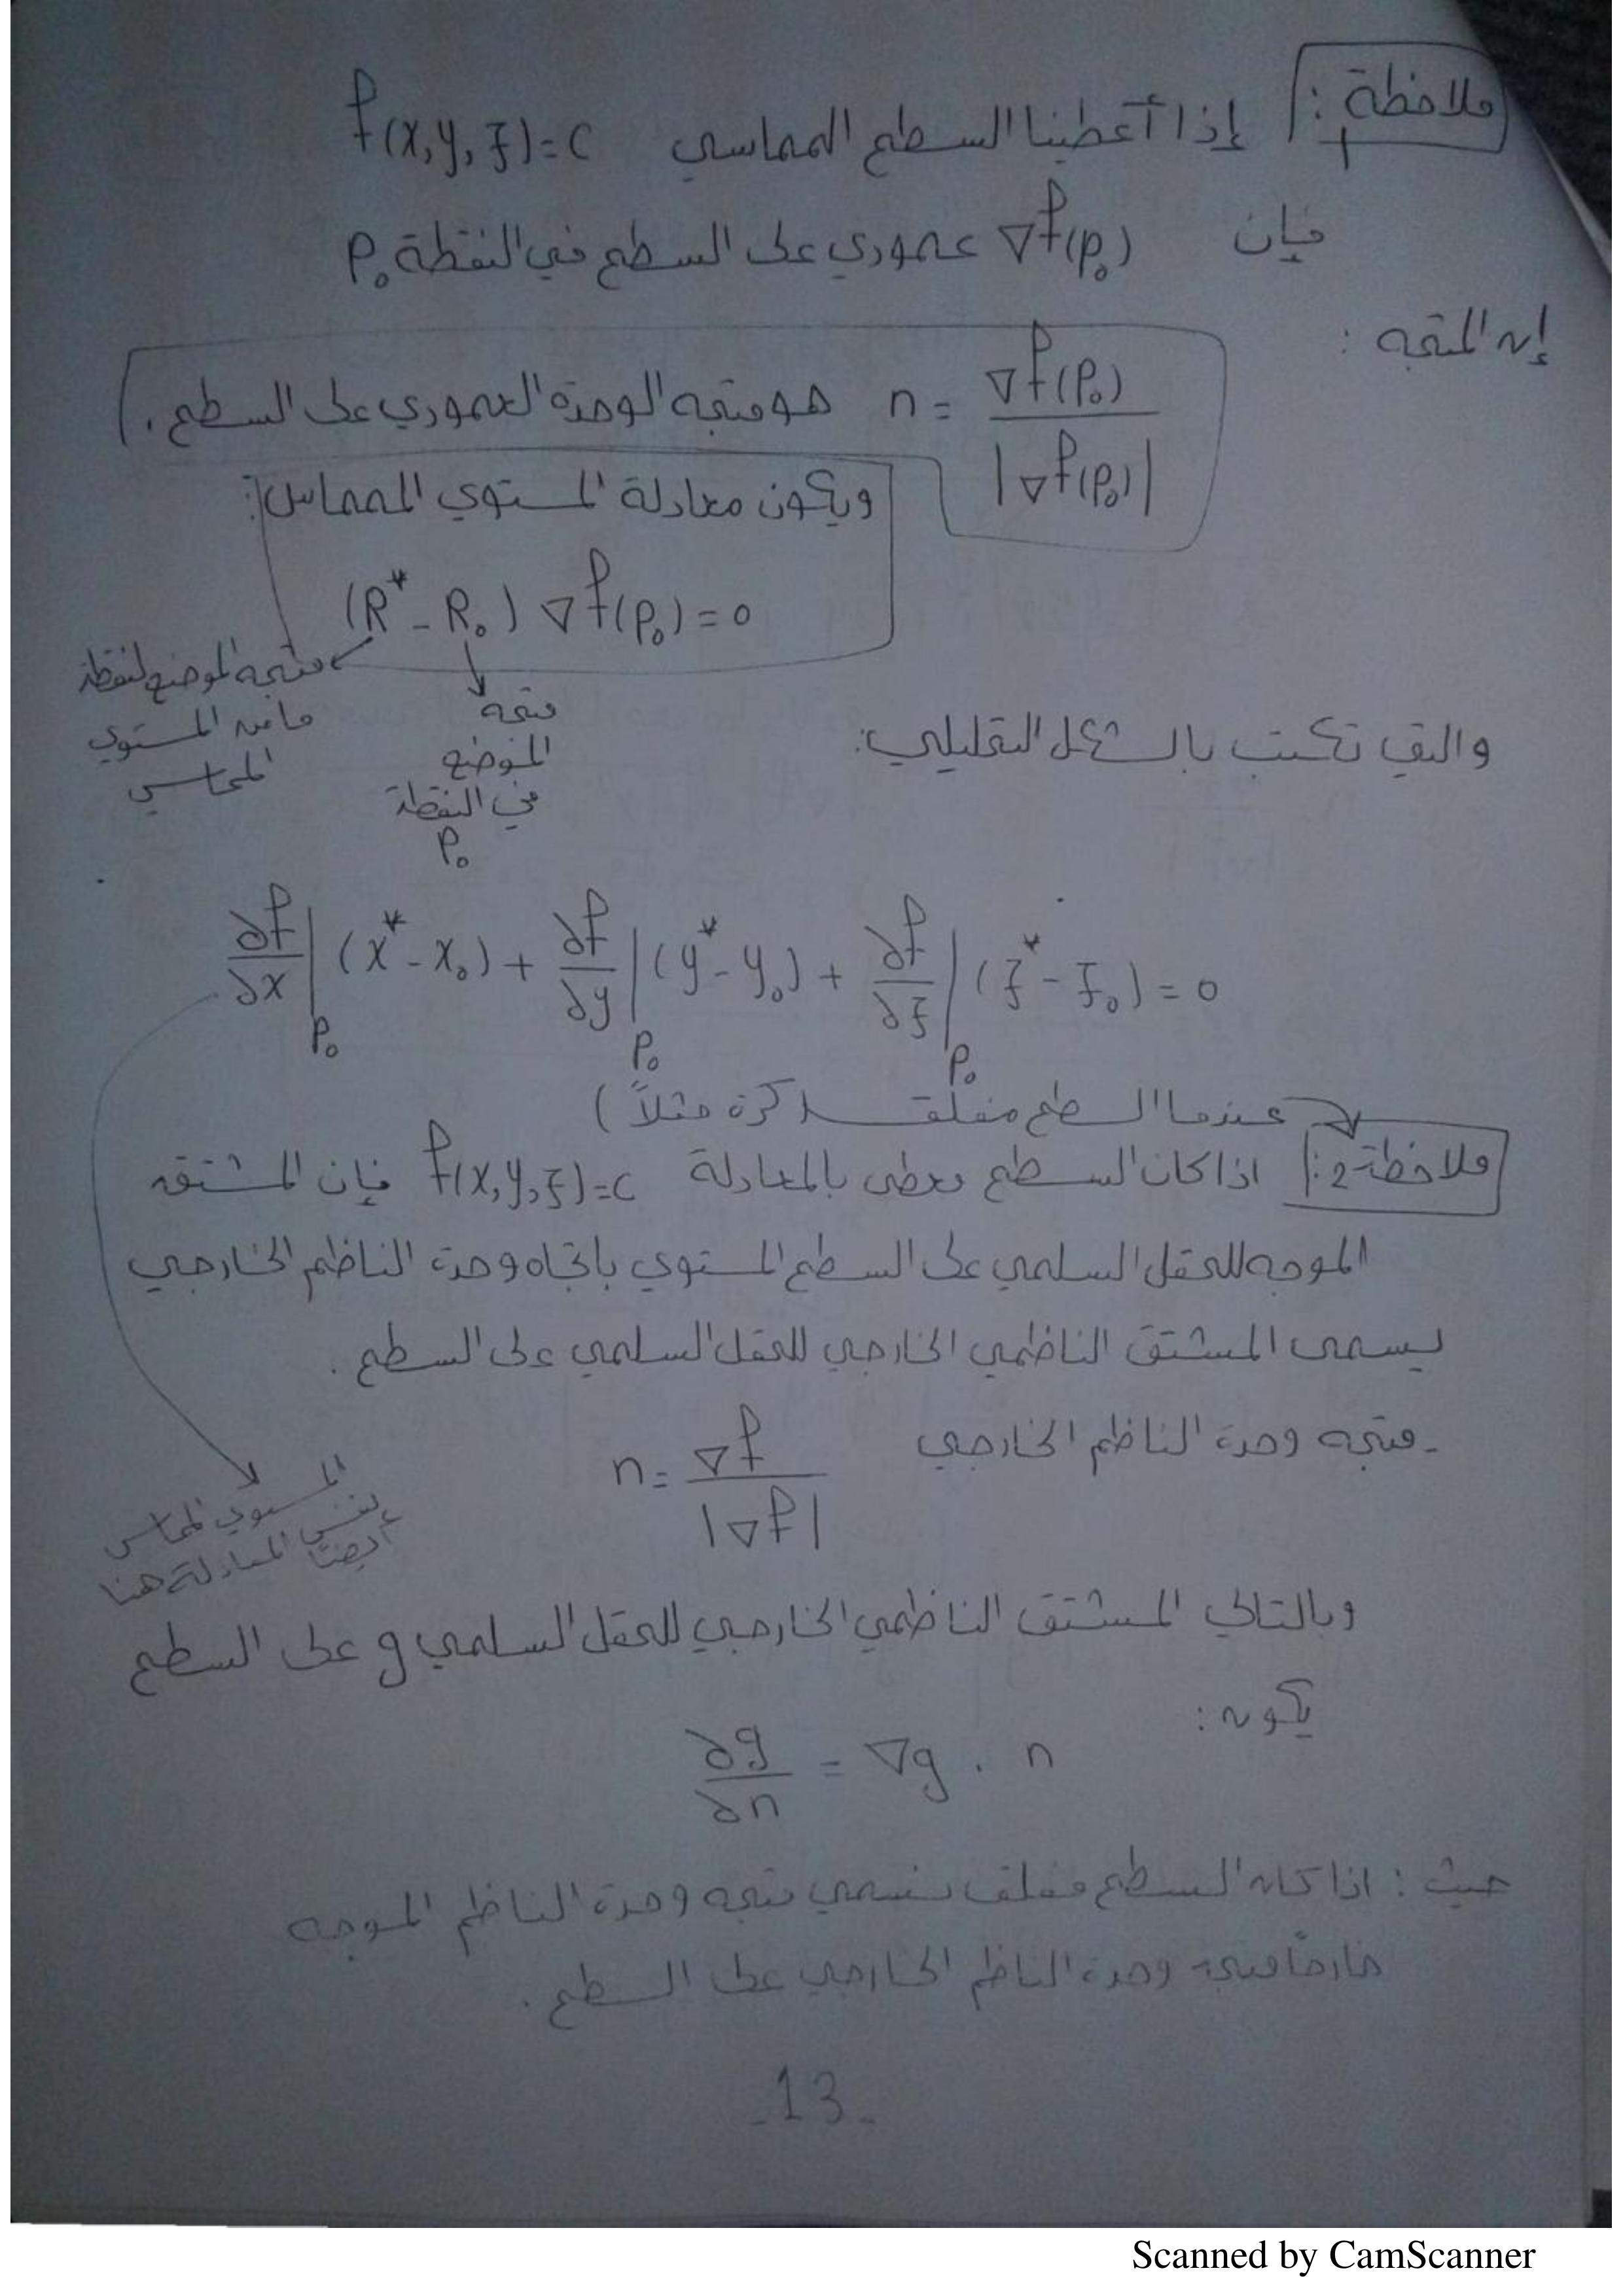 ملاحظة 1: إذا أعطينا السطح المماسي f(x,y,z)=c
فإن ∇f(P₀) عمودي على السطح في النقطة P₀
إن المتجه :
n = ∇f(P₀) / |∇f(P₀)| هو متجه الوحدة العمودي على السطح .
ويكون معادلة المستوي المماس :
(R* - R₀) ∇f(P₀) = 0
متجه الموضع لنقطة
ما من المستوي
المماسي
متجه
الموضع
في النقطة
P₀
والتي تكتب بالشكل التحليلي:
∂f/∂x|P₀ (x* - x₀) + ∂f/∂y|P₀ (y* - y₀) + ∂f/∂z|P₀ (z* - z₀) = 0
عندما السطح مغلق (كرة مثلاً)
ملاحظة 2: اذا كان السطح معطى بالمعادلة f(x,y,z)=c فإن المشتق
الموجه للحقل السلمي على السطح المستوي باتجاه وحدة الناظم الخارجي
يسمى المشتق الناظمي الخارجي للحقل السلمي على السطح .
- متجه وحدة الناظم الخارجي n = ∇f / |∇f|
المستوي المماس
نفس المعادلة هنا
أيضاً
وبالتالي المشتق الناظمي الخارجي للحقل السلمي g على السطح
يكون :
∂g/∂n = ∇g . n
حيث : اذا كان السطح مغلق نسمي متجه وحدة الناظم الموجه
خارجاً متجه وحدة الناظم الخارجي على السطح .
-13-
Scanned by CamScanner